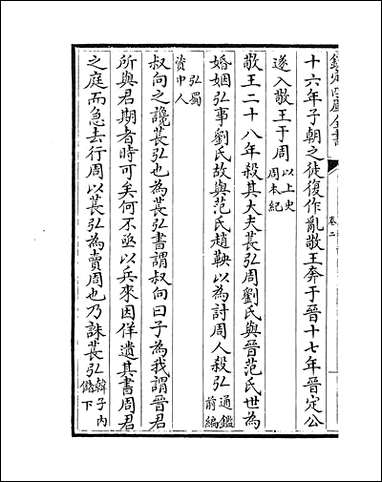 欽定四庫全書
卷二
十六年子朝之徒復作亂敬王奔于晉十七年晉定公
遂入敬王于周以上史周本紀
敬王二十八年殺其大夫萇弘周劉氏與晉范氏世為
婚姻弘事劉氏故與范氏趙鞅以為討周人殺弘通鑑前編
弘蜀資中人
叔向之讒萇弘也為萇弘書謂叔向曰子為我謂晉君
所與君期者時可矣何不亟以兵來因佯遺其書周君
之庭而急去行周以萇弘為賣周也乃誅萇弘韓子內儲下